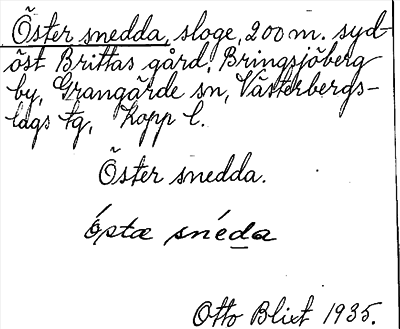 Öster snedda, sloge, 200 m. syd-
öst Brittas gård, Bringsjöberg
by, Grangärde sn, Västerbergs-
lags tg, Kopp l.
Öster snedda.
óstæ snéda
Otto Blixt 1935.